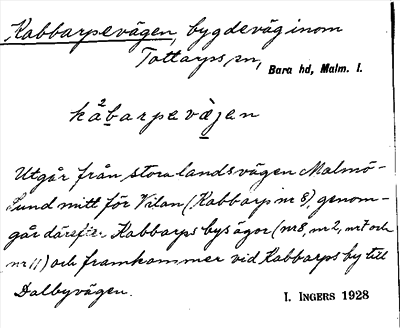 Kabbarpevägen, bygdeväg inom
Tottarps sn, Bara hd, Malm. l.
kåbarpevä̀jen
Utgår från stora landsvägen Malmö-
Lund mitt för Vilan (Kabbarp nr 8), genom-
går därefter Kabbarps bys ägor (nr 8, nr 2, nr 7 och
nr 11) och framkommer vid Kabbarps by till
Dalbyvägen.
I. INGERS 1928